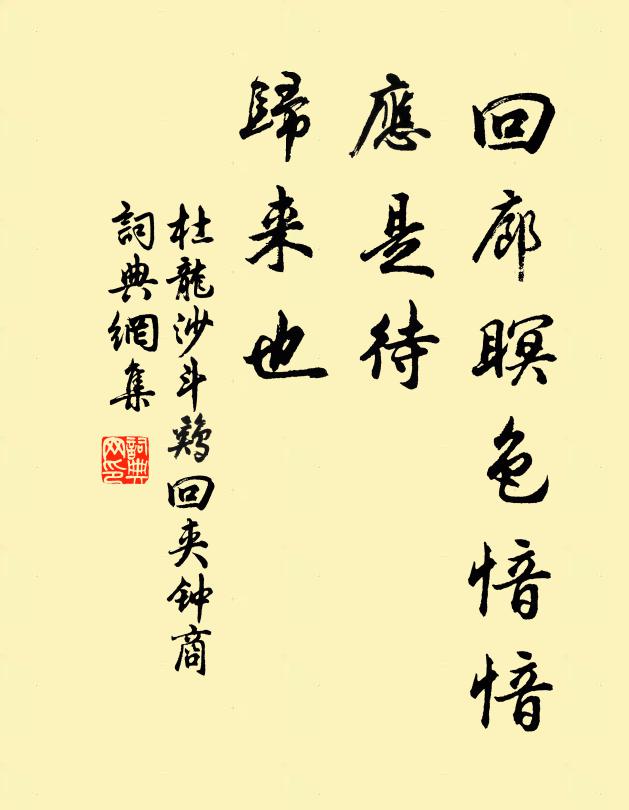 回廊暝色愔愔
應是待
歸来也
杜龍沙斗鷄回夹钟商
詞典網集
詞典网印